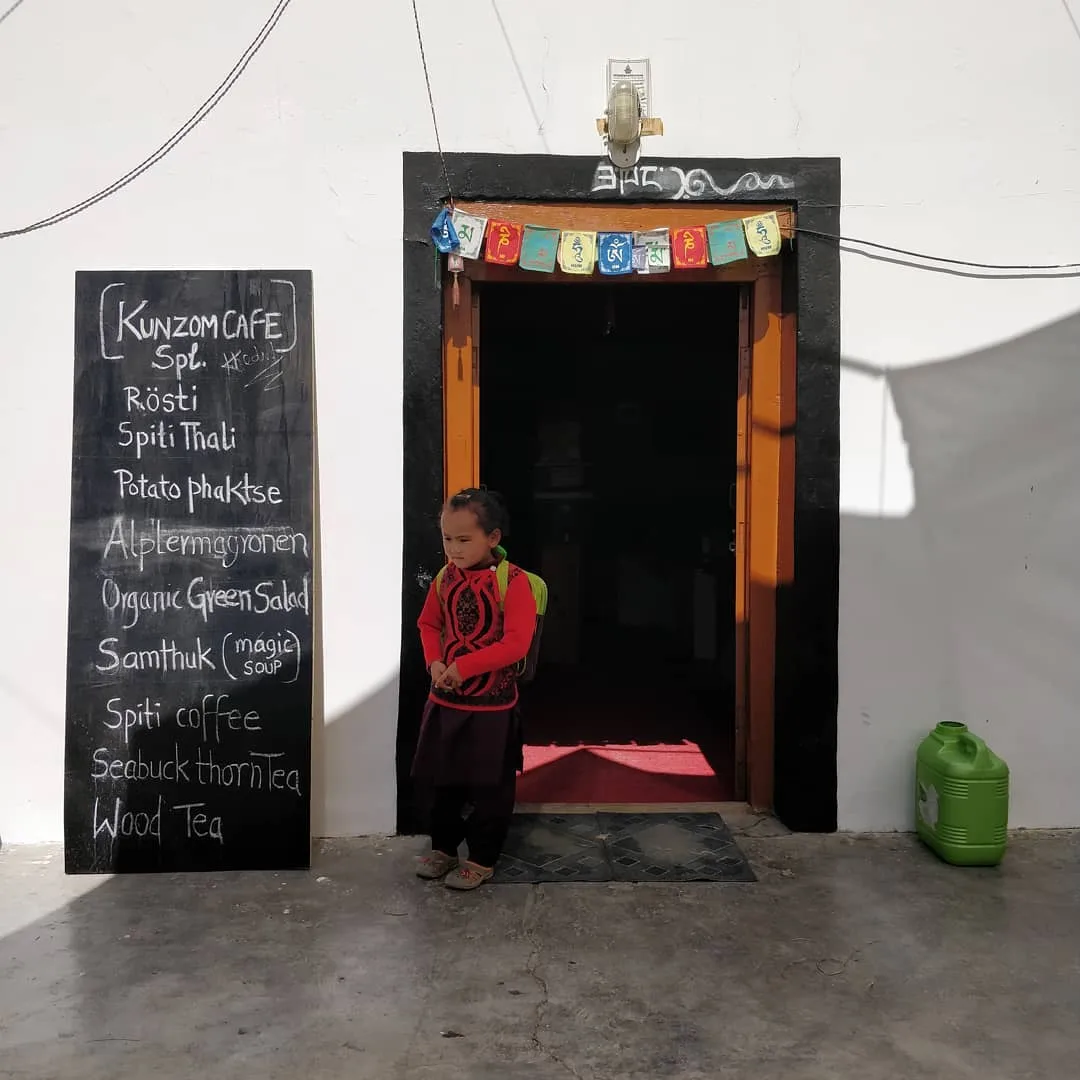 [KUNZOM CAFE]
Spl.
Rösti
Spiti Thali
Potato phaktse
Alplermagronen
Organic Green Salad
Samthuk (magic
SOUP)
Spiti coffee
Seabuckthorn Tea
Wood Tea